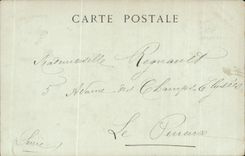 CARTE POSTALE
Mademoiselle Regnault
5 Avenue des Champs Elysées
Le Perreux
Seine